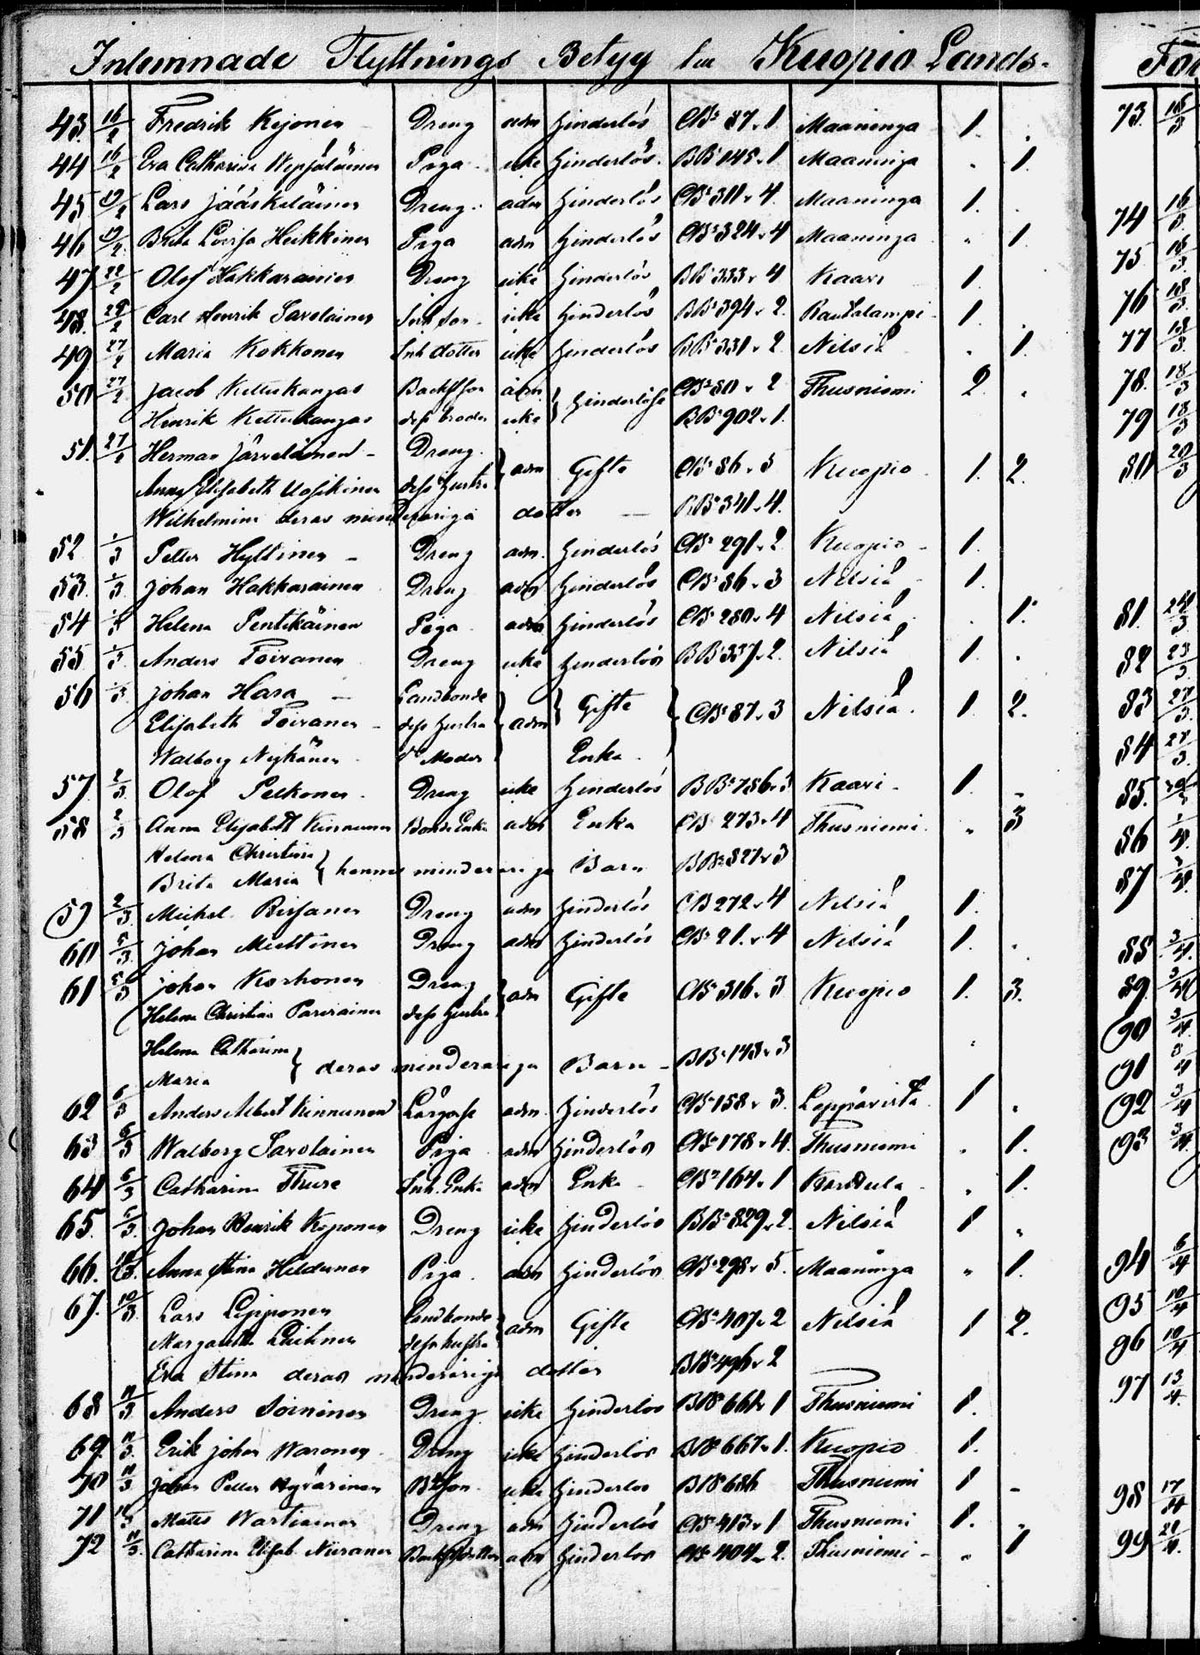 Inlemnade Flyttnings Betyg Kuopio Lands-
43. 16/2 Fredrik Kejonen Dreng adm hinderlös CB: 87. 1 Maaninga 1.
44 16/2 Eva Catharina Piga icke hinderlös BB: 145. 1 Maaninga 1.
45 19/2 Lars Jääskeläinen Dreng adm hinderlös CB: 311. 4. Maaninga 1.
46 19/2 Brita Lovisa Heikkinen Piga adm hinderlös CB: 324. 4 Maaninga 1
47 22/2 Olof Hakkarainen Dreng icke hinderlös BB: 333. 4 Kaavi 1
48. Carl Henrik Savolainen Inh Son icke hinderlös BB: 394. 2. Rautalampi 1.
49 27/2 Maria Kokkonen Inh dotter icke hinderlös BB: 331. 2 Nilsiä 1.
50 27/2 Jacob Ketterkangas adm CB: 80. 2 Thusniemi 2.
Henrik Ketterkangas dess broder icke } hinderlöse BB: 902. 1.
51. 27/2 Herman Järveläinen Dreng
Anna Elisabeth dess hustru } adm Gifte CB: 86. 3 Kuopio 1. 2.
Wilhelmina deras minderåriga dotter BB: 341. 4.
52 1/3 Petter Hyttinen Dreng adm. hinderlös CB: 291. 2 Kuopio 1.
53. 1/3 Johan Hakkarainen Dreng adm hinderlös CB: 86. 3 Nilsiä 1.
54 1/3 Helena Pentikäinen Piga adm hinderlös CB: 280. 4 Nilsiä 1.
55 1/3 Anders Toivanen Dreng icke hinderlös BB: 337. 2. Nilsiä 1.
56 1/3 Johan Hara Landbonde
Elisabeth Toivanen dess hustru } adm } Gifte } CB: 87. 3 Nilsiä 1 2.
Walborg Nykänen d:o Moder Enka
57. 2/3 Olof Pelkonen Dreng icke hinderlös BB: 756. 3 Kaavi 1
58 2/3 Anna Elisabeth Kinnunen Bonde Enka adm Enka CB: 273. 4 Thusniemi 3
Helena Christina
Brita Maria } hennes minderåriga Barn BB: 827. 3
59 2/3 Michel Dreng adm hinderlös CB 272. 4 Nilsiä 1.
60 5/3 Johan Miettinen Dreng adm hinderlös CB: 21. 4 Nilsiä 1.
61 5/3 Johan Korhonen Dreng
Helena Christina Parviainen dess hustru } adm Gifte CB: 316. 3 Kuopio 1. 3.
Helena Catharina
Maria } deras minderåriga Barn BB: 143. 3
62 6/3 Anders Albert Kinnunen adm. hinderlös CB: 158. 3. Leppävirta 1
63 6/3 Walborg Savolainen Piga adm hinderlös CB: 178. 4. Thusniemi 1.
64 6/3 Catharina Thure Inh. Enka adm Enka CB: 164. 1 Karttula 1.
65. 6/3 Johan Henrik Keponen Dreng icke hinderlös BB: 829. 2. Nilsiä 1
66. 10/3 Anna Stina Hildunen Piga adm hinderlös CB: 298. 5. Maaninga 1.
67. 10/3 Lars Lipponen Landbonde
Margaretha dess hustru } adm Gifte CB: 407. 2 Nilsiä 1 2.
Eva Stina deras minderåriga dotter BB: 496. 2
68 11/3 Anders Soininen Dreng icke hinderlös BB: 664. 1 Thusniemi 1.
69. 11/3 Erik Johan Waronen Dreng icke hinderlös BB: 667. 1. Kuopio 1.
70 11/3 Johan Petter Hyvärinen icke hinderlös BB: 686 Thusniemi 1
71 11/3 Matts Martiainen Dreng adm hinderlös CB: 413. 1 Thusniemi 1.
72 11/3. Catharina Elisab. Niiranen adm hinderlös CB: 404. 2. Thusniemi 1
73. 16/3
74 16/3
75 16/3
76 18/3
77 18/3
78. 18/3
79 18/3
80 20/3
81.
82 23/3
83 27/3
84 27/3
85.
86 1/4
87
88 3/4
89. 3/4
90 3/4
91 3/4
92 3/4
93 3/4
94 6/4
95 10/4
96 10/4
97 13/4
98 17/4
99 20/4